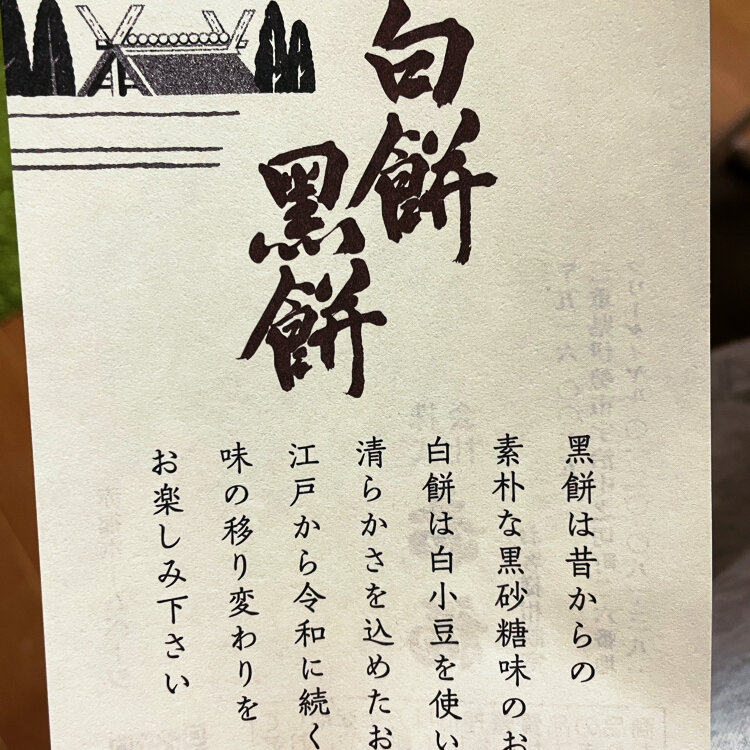 白餅
黑餅
黑餅は昔からの
素朴な黒砂糖味のお
白餅は白小豆を使い
清らかさを込めたお
江戸から令和に続く
味の移り変わりを
お楽しみ下さい